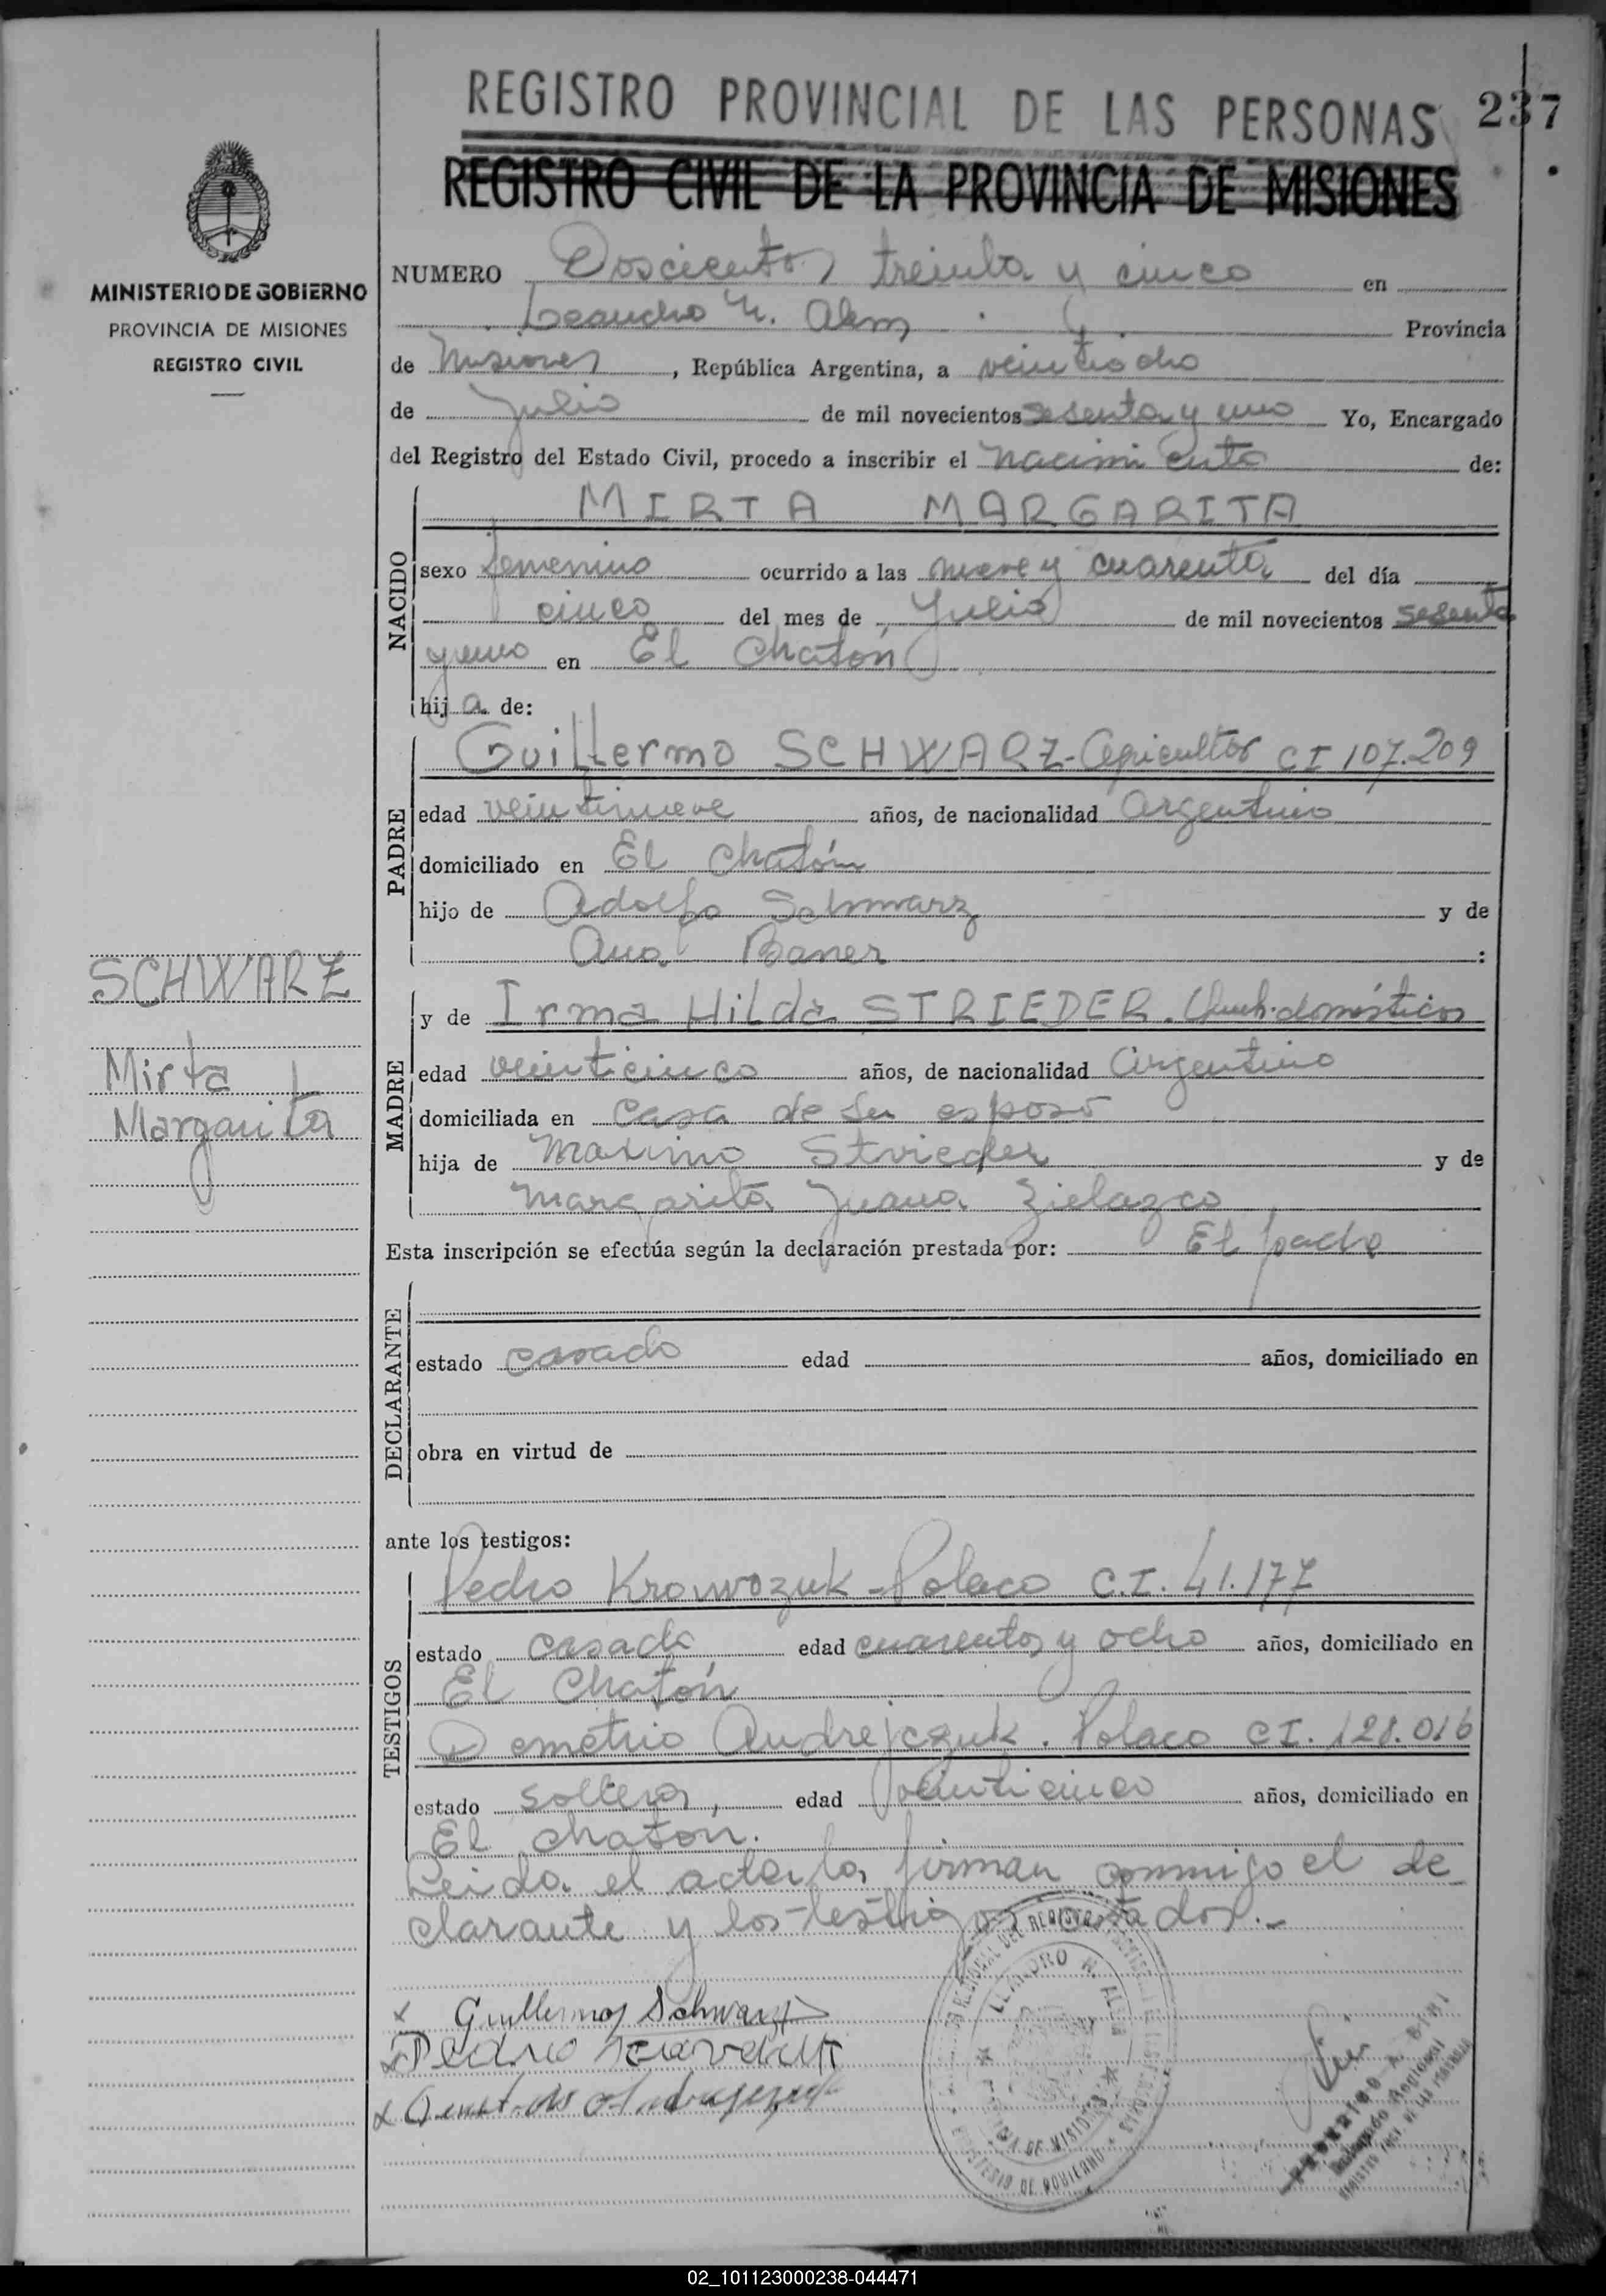 REGISTRO PROVINCIAL DE LAS PERSONAS 237
REGISTRO CIVIL DE LA PROVINCIA DE MISIONES
MINISTERIO DE GOBIERNO
PROVINCIA DE MISIONES
REGISTRO CIVIL
NUMERO Doscientos treinta y cinco en
Leandro N. Alem Provincia
de Misiones, República Argentina, a veintiocho
de Julio de mil novecientos sesenta y uno Yo, Encargado
del Registro del Estado Civil, procedo a inscribir el nacimiento de:
NACIDO
MIRTA MARGARITA
sexo femenino ocurrido a las nueve y cuarenta del día
cinco del mes de Julio de mil novecientos sesenta
y uno en El Chatón
hija de:
PADRE
Guillermo SCHWARZ-Agricultor CI 107.209
edad veintinueve años, de nacionalidad Argentino
domiciliado en El Chatón
hijo de Adolfo Schwarz y de
Ana Baner :
SCHWARZ
Mirta
Margarita
MADRE
y de Irma Hilda STRIEDER. Queh. domésticos
edad veinticinco años, de nacionalidad Argentina
domiciliada en casa de su esposo
hija de Maximo Strieder y de
Margarita Juana Zielazco
Esta inscripción se efectúa según la declaración prestada por: El padre
DECLARANTE
estado casado edad años, domiciliado en
obra en virtud de
ante los testigos:
TESTIGOS
Pedro Krawozuk-Polaco C.I. 41.177
estado casado edad cuarenta y ocho años, domiciliado en
El Chatón
Demetrio Andrejczuk. Polaco CI. 128.016
estado soltero, edad veinticinco años, domiciliado en
El Chaton.
Leida el acta, la firman conmigo el de
clarante y los testigos citados.-
x Guillermo Schwarz
x Pedro
x
LEANDRO N. ALEM
MINISTERIO DE GOBIERNO
Delegado Regional
02_101123000238-044471